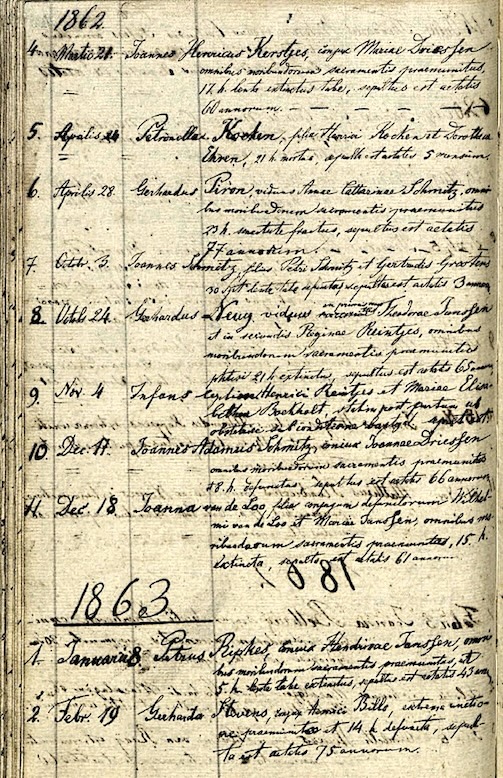 1862
4. Martii 21. Joannes Henricus Kerstjes, conjux Mariae Driessen
omnibus moribundorum sacramentis praemunitus,
17 h. lenta extinctus tabe, sepultus est aetatis
60 annorum.
5. Aprilis 26 Petronella Kocken, filia Henrici Kocken et Dorothea
Ehren, 21 h. mortua, sepulta est aetatis 5 mensium.
6. Aprilis 28. Gerhardus Piron, viduus Annae Catharinae Schmitz, omni
bus moribundorum sacramentis praemunitus
23 h. senectute fractus, sepultus est aetatis
77 annorum.
7. Octb. 3. Joannes Schmitz, filius Petri Schmitz et Gertrudis
30 Spt. lenta tabe sepultus est aetatis 3
8. Octb. 24. Gerhardus viduus in primis Theodorae Janssen
et in secundis Reginae Reintjes, omnibus
moribundorum sacramentis praemunitus
phtisi 21 h. extinctus, sepultus est aetatis 65 annorum
9. Nov. 4 Infans Henrici Reintjes et Mariae Elisa
betha Bockholt, statim post partum ab
obstetrice sub conditione
10 Dec. 17. Joannes Adamus Schmitz, conjux Joannae Driessen
omnibus moribundorum sacramentis praemunitus
18. h. defunctus, sepultus est aetatis 66 annorum.
11. Dec. 18. Joanna van de Loo, filia conjugum defunctorum Wilhel
mi van de Loo et Mariae Janssen, omnibus mo
ribundorum sacramentis praemunitas, 15 h.
extincta, sepulta est aetatis 61 annorum
1863
1. Januarii 8 Petrus Ripkes, conjux Hendrinae Janssen, omni
bus moribundorum sacramentis praemunitus, et
5 h. lenta tabe extinctus, sepultus est aetatis 43 ann
2. Febr. 19 Gerharda Stevens, conjux Henrici Bills, extrema unctio
ne praemunita et 14 h. defuncta, sepul
ta est aetatis 75 annorum.